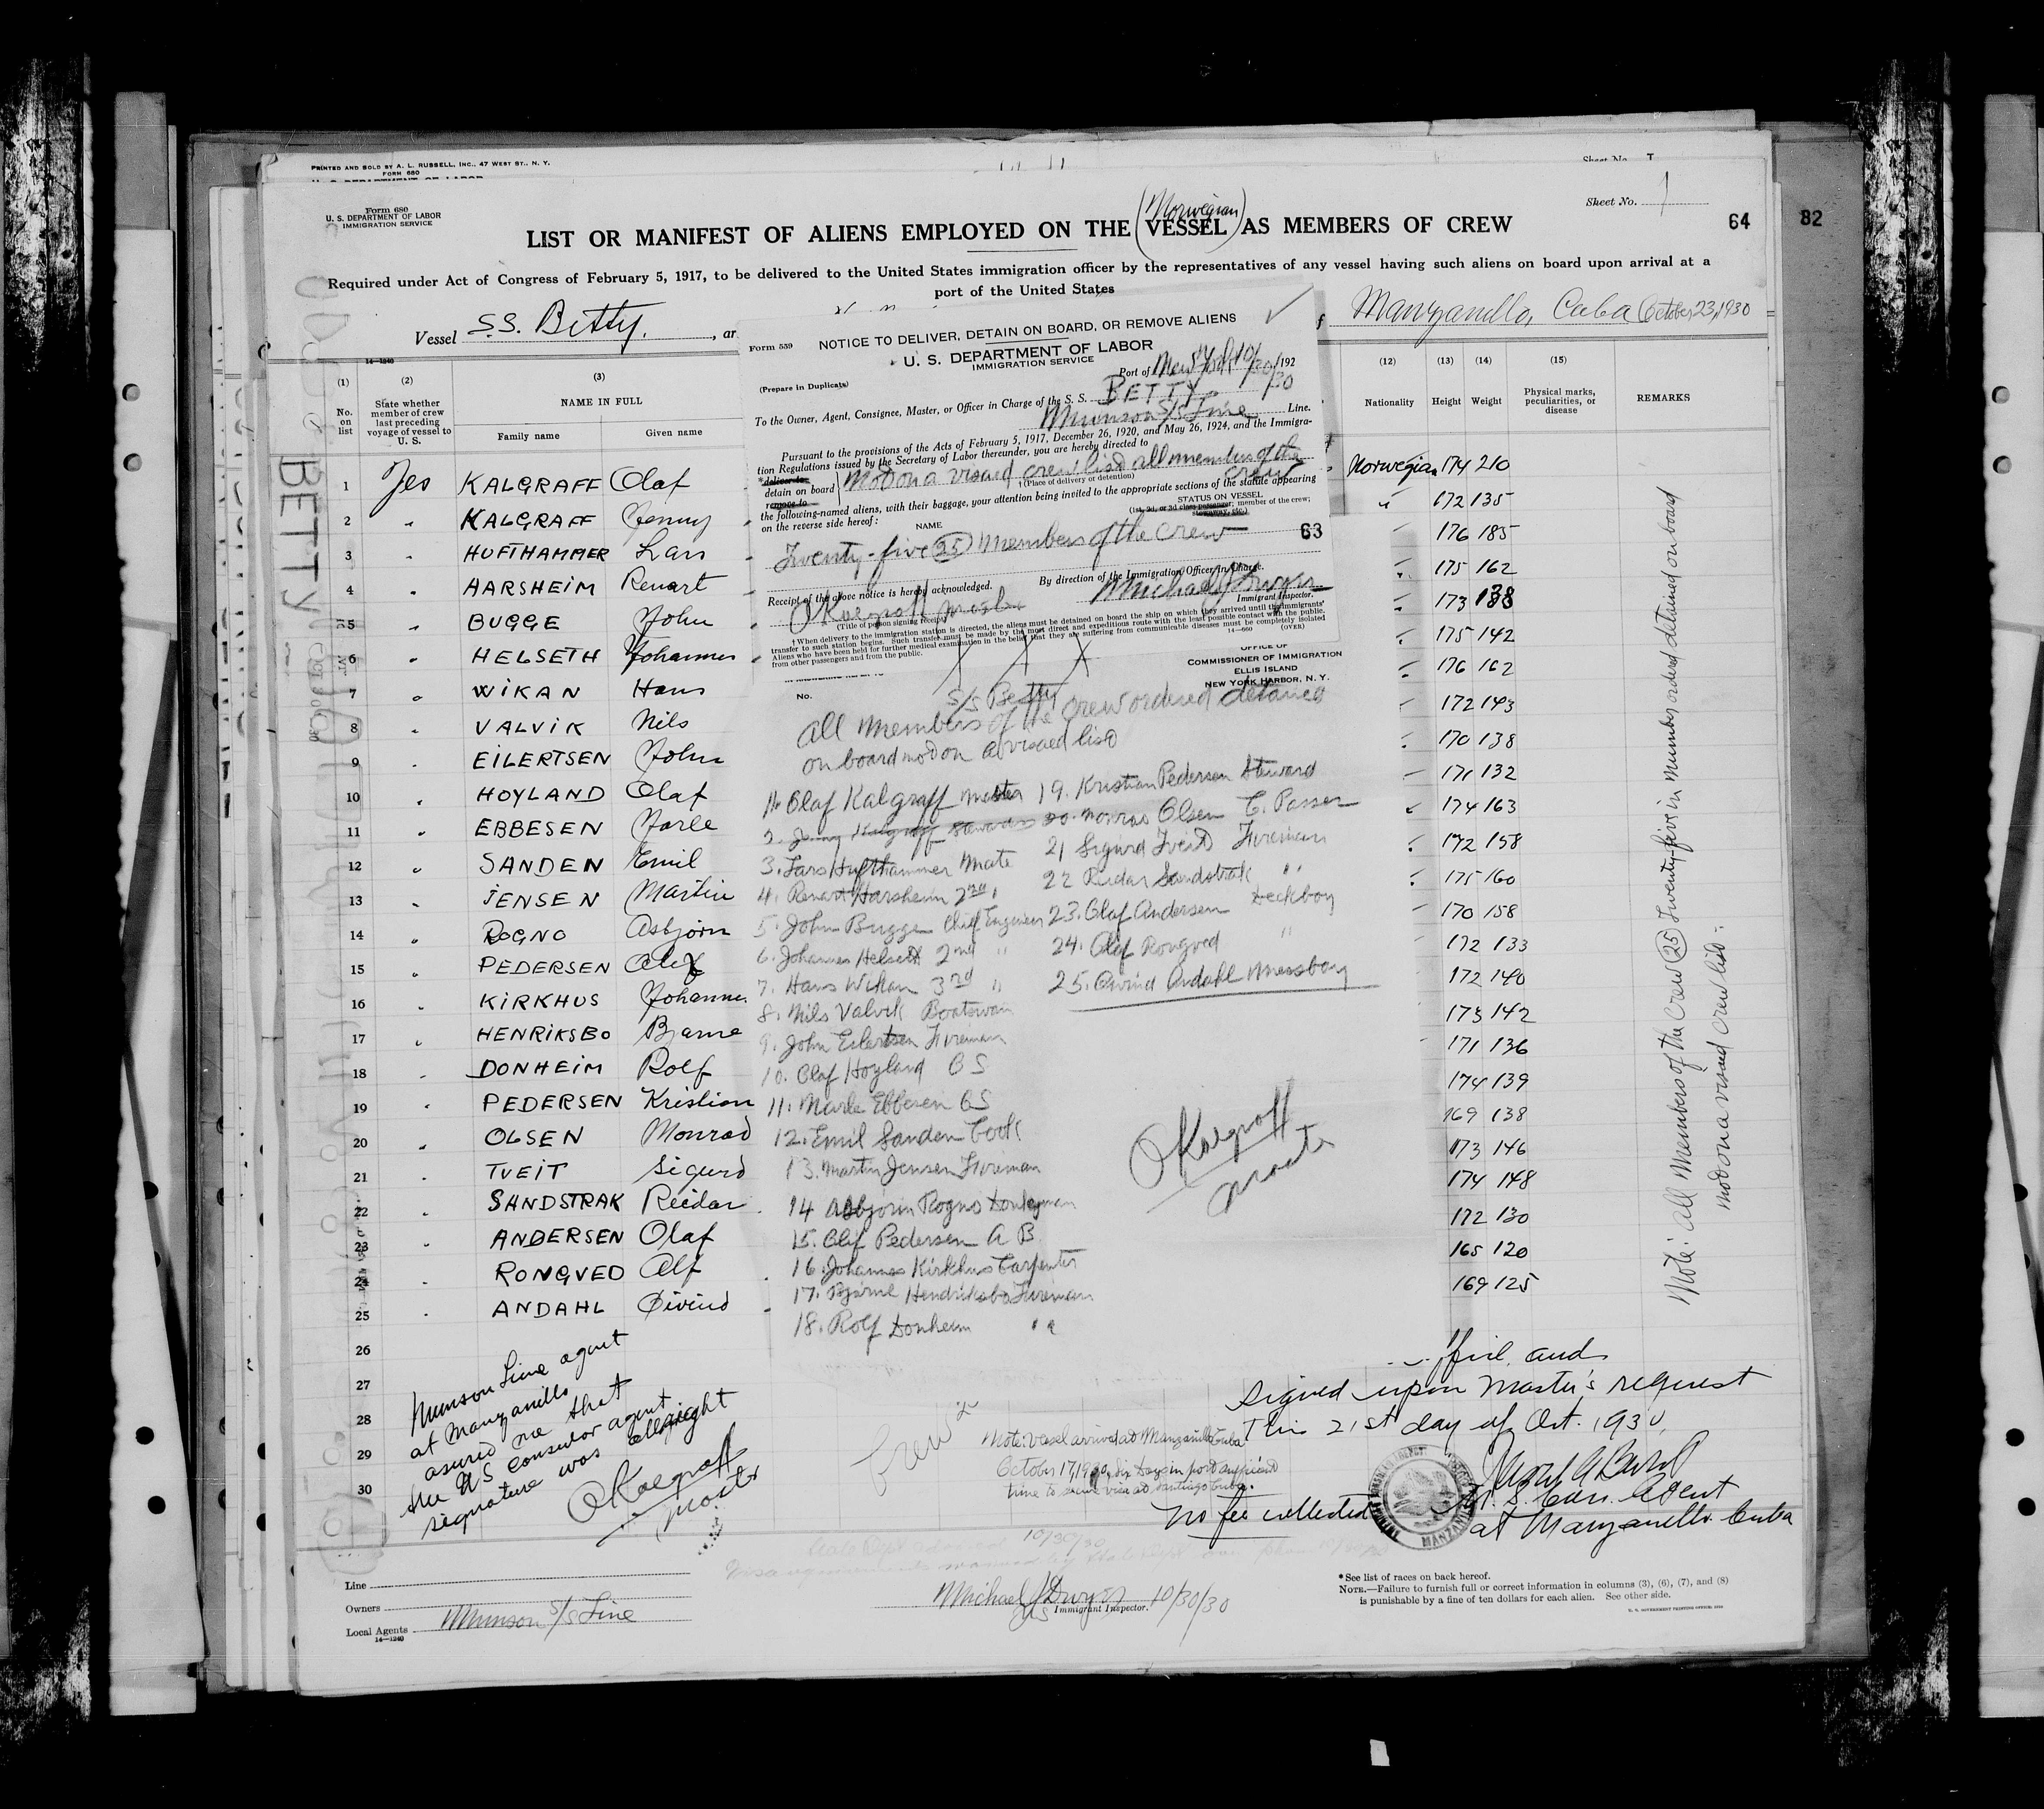 PRINTED AND SOLD BY A. L. RUSSELL, INC., 47 WEST ST., N. Y.
FORM 680
Sheet No.
Form 680
U. S. DEPARTMENT OF LABOR
IMMIGRATION SERVICE
Sheet No. 1
64
82
(Norwegian)
LIST OR MANIFEST OF ALIENS EMPLOYED ON THE VESSEL AS MEMBERS OF CREW
Required under Act of Congress of February 5, 1917, to be delivered to the United States immigration officer by the representatives of any vessel having such aliens on board upon arrival at a
port of the United States
Vessel S.S. Betty, ar
Manzanillo, Cuba October 23, 1930
14-1240
(1) No. on list
(2) State whether member of crew last preceding voyage of vessel to U. S.
(3) NAME IN FULL
Family name Given name
(12) Nationality
(13) Height
(14) Weight
(15) Physical marks, peculiarities, or disease
REMARKS
1 Yes KALGRAFF Olaf Norwegian 174 210
2 " KALGRAFF Jenny " 172 135
3 " HUFTHAMMER Lars 176 185
4 " HARSHEIM Renart 175 162
5 " BUGGE John 173 138
6 " HELSETH Johannes 175 142
7 " WIKAN Hans 176 162
8 " VALVIK Nils 172 143
9 " EILERTSEN John 170 138
10 " HOYLAND Olaf 171 132
11 " EBBESEN Jarle 174 163
12 " SANDEN Emil 172 158
13 " JENSEN Martin 175 160
14 " ROGNO Asbjorn 170 158
15 " PEDERSEN Alif 172 133
16 " KIRKHUS Johannes 172 140
17 " HENRIKSBO Bjarne 173 142
18 " DONHEIM Rolf 171 136
19 " PEDERSEN Kristian 174 139
20 " OLSEN Monrad 169 138
21 " TVEIT Sigurd 173 146
22 " SANDSTRAK Reidar 174 148
23 " ANDERSEN Olaf 172 130
24 " RONGVED Alf 165 120
25 " ANDAHL Øivind 169 125
26
27
28
29
30
BETTY
Form 559
NOTICE TO DELIVER, DETAIN ON BOARD, OR REMOVE ALIENS
U. S. DEPARTMENT OF LABOR
IMMIGRATION SERVICE
(Prepare in Duplicate)
Port of New York 10/30/30 192
To the Owner, Agent, Consignee, Master, or Officer in Charge of the S. S. BETTY
Munson S/S Line Line.
Pursuant to the provisions of the Acts of February 5, 1917, December 26, 1920, and May 26, 1924, and the Immigra-
tion Regulations issued by the Secretary of Labor thereunder, you are hereby directed to
*deliver to
detain on board
remove to
Not on a visaed crew list all members of the crew
†(Place of delivery or detention)
the following-named aliens, with their baggage, your attention being invited to the appropriate sections of the statute appearing
on the reverse side hereof:
NAME
STATUS ON VESSEL
(1st, 2d, or 3d class passenger; member of the crew;
stowaway, etc.)
Twenty-five (25) Members of the crew
63
Receipt of the above notice is hereby acknowledged.
By direction of the Immigration Officer in Charge.
O Kalgraff Master
(Title of person signing receipt)
Michael J Dwyer
Immigrant Inspector.
†When delivery to the immigration station is directed, the aliens must be detained on board the ship on which they arrived until the immigrants'
transfer to such station begins. Such transfer must be made by the most direct and expeditious route with the least possible contact with the public.
Aliens who have been held for further medical examination in the belief that they are suffering from communicable diseases must be completely isolated
from other passengers and from the public.
14-660 (OVER)
OFFICE OF
COMMISSIONER OF IMMIGRATION
ELLIS ISLAND
NEW YORK HARBOR, N. Y.
No.
S/S Betty
All members of the crew ordered detained
on board not on a visaed list
1. Olaf Kalgraff Master
2. Jenny Kalgraff Stewardess
3. Lars Hufthammer Mate
4. Renart Harsheim 2nd "
5. John Bugge Chief Engineer
6. Johannes Helseth 2nd "
7. Hans Wikan 3rd "
8. Nils Valvik Boatswain
9. John Eilertsen Fireman
10. Olaf Hoyland OS
11. Marle Ebbesen OS
12. Emil Sanden Cook
13. Martin Jensen Fireman
14 Asbjorn Rogno Donkeyman
15. Alif Pedersen A B
16. Johannes Kirkhus Carpenter
17. Bjarne Hendriksbo Fireman
18. Rolf Donheim "
19. Kristian Pedersen Steward
20. Monrad Olsen C. Passer
21 Sigurd Tveit Fireman
22 Reidar Sandstrak "
23. Olaf Andersen Deckboy
24. Alf Rongved "
25. Oivind Andahl Messboy
O Kalgraff
Master
Note: All Members of the Crew (25) Twenty-five in number ordered detained on board
not on a visaed crew list:
Munson Line agent
at Manzanillo
assured me that
the US consular agent
signature was allright
O Kalgraff
Master
Crew
Note: Vessel arrived at Manzanillo Cuba
October 17, 1930, six days in port sufficient
time to secure visa at Santiago Cuba.
five, and
signed upon Master's request
this 21st day of Oct. 1930,
U. S. Con. Agent
at Manzanillo Cuba
No fee collected
MANZANILLO
10/30/30
Line
Owners
Local Agents Munson S/S Line
14-1240
Michael J Dwyer
Immigrant Inspector. 10/30/30
*See list of races on back hereof.
NOTE.—Failure to furnish full or correct information in columns (3), (6), (7), and (8)
is punishable by a fine of ten dollars for each alien. See other side.
U. S. GOVERNMENT PRINTING OFFICE